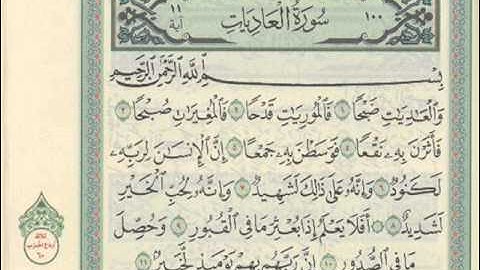 ١٠٠ سُورَةُ الْعَادِيَاتِ ١١ آية
بِسْمِ اللَّهِ الرَّحْمَٰنِ الرَّحِيمِ
وَالْعَادِيَاتِ ضَبْحًا ١ فَالْمُورِيَاتِ قَدْحًا ٢ فَالْمُغِيرَاتِ صُبْحًا ٣
فَأَثَرْنَ بِهِ نَقْعًا ٤ فَوَسَطْنَ بِهِ جَمْعًا ٥ إِنَّ الْإِنسَانَ لِرَبِّهِ
لَكَنُودٌ ٦ وَإِنَّهُ عَلَىٰ ذَٰلِكَ لَشَهِيدٌ ٧ وَإِنَّهُ لِحُبِّ الْخَيْرِ
لَشَدِيدٌ ٨ أَفَلَا يَعْلَمُ إِذَا بُعْثِرَ مَا فِي الْقُبُورِ ٩ وَحُصِّلَ
مَا فِي الصُّدُورِ ١٠ إِنَّ رَبَّهُم بِهِمْ يَوْمَئِذٍ لَّخَبِيرٌ ١١
ثلاثة
أرباع الحزب
٦٠